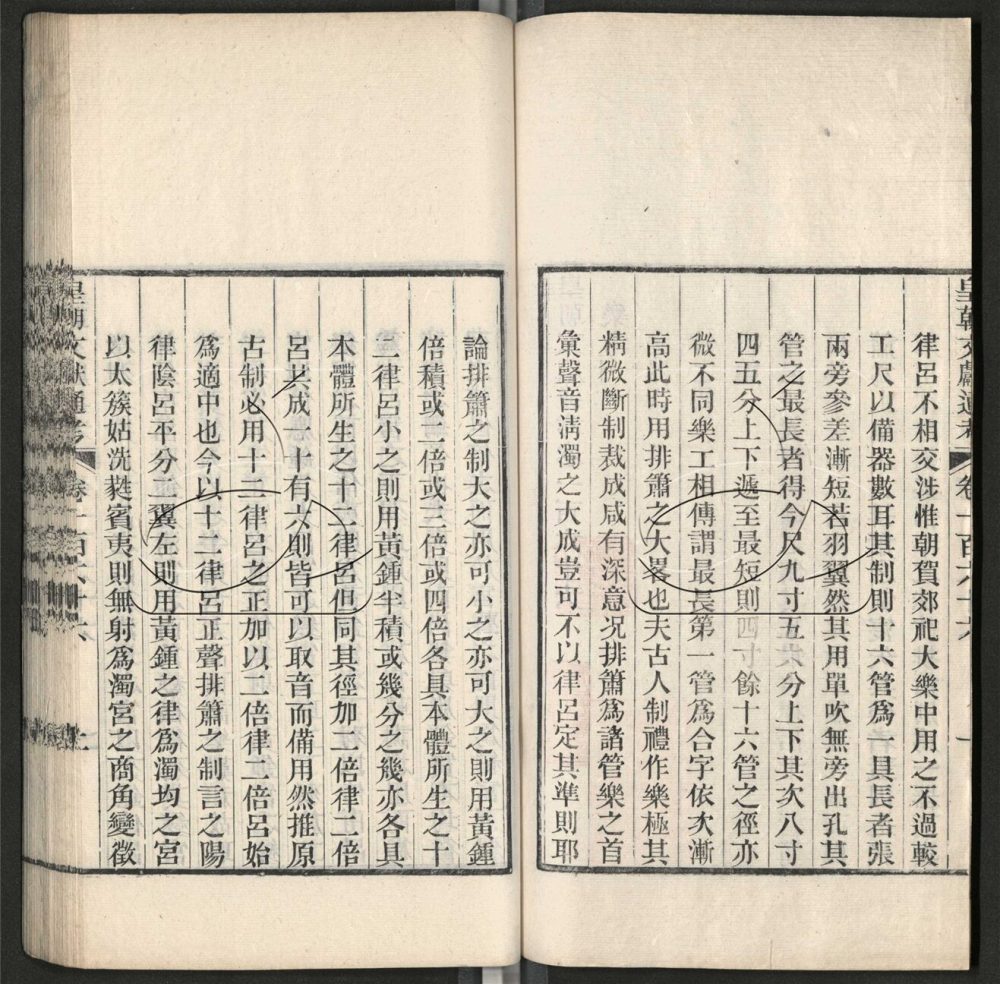 皇朝文獻通考 卷一百六十六
律呂不相交涉惟朝賀郊祀大樂中用之不過較
工尺以備器數耳其制則十六管爲一具長者張
兩旁參差漸短若羽翼然其用單吹無旁出孔其
管之最長者得今尺九寸五六分上下其次八寸
四五分上下遞至最短則四寸餘十六管之徑亦
微不同樂工相傳謂最長第一管爲合字依次漸
高此時用排簫之大畧也夫古人制禮作樂極其
精微斷制裁成咸有深意况排簫爲諸管樂之首
彙聲音淸濁之大成豈可不以律呂定其準則耶
論排簫之制大之亦可小之亦可大之則用黃鍾
倍積或二倍或三倍或四倍各具本體所生之十
二律呂小之則用黃鍾半積或幾分之幾亦各具
本體所生之十二律呂但同其徑加二倍律二倍
呂共成一十有六則皆可以取音而備用然推原
古制必用十二律呂之正加以二倍律二倍呂始
爲適中也今以十二律呂正聲排簫之制言之陽
律陰呂平分二翼左則用黃鍾之律爲濁均之宮
以太簇姑洗蕤賓夷則無射爲濁宮之商角變徵
皇朝文獻通考 卷一百六十六